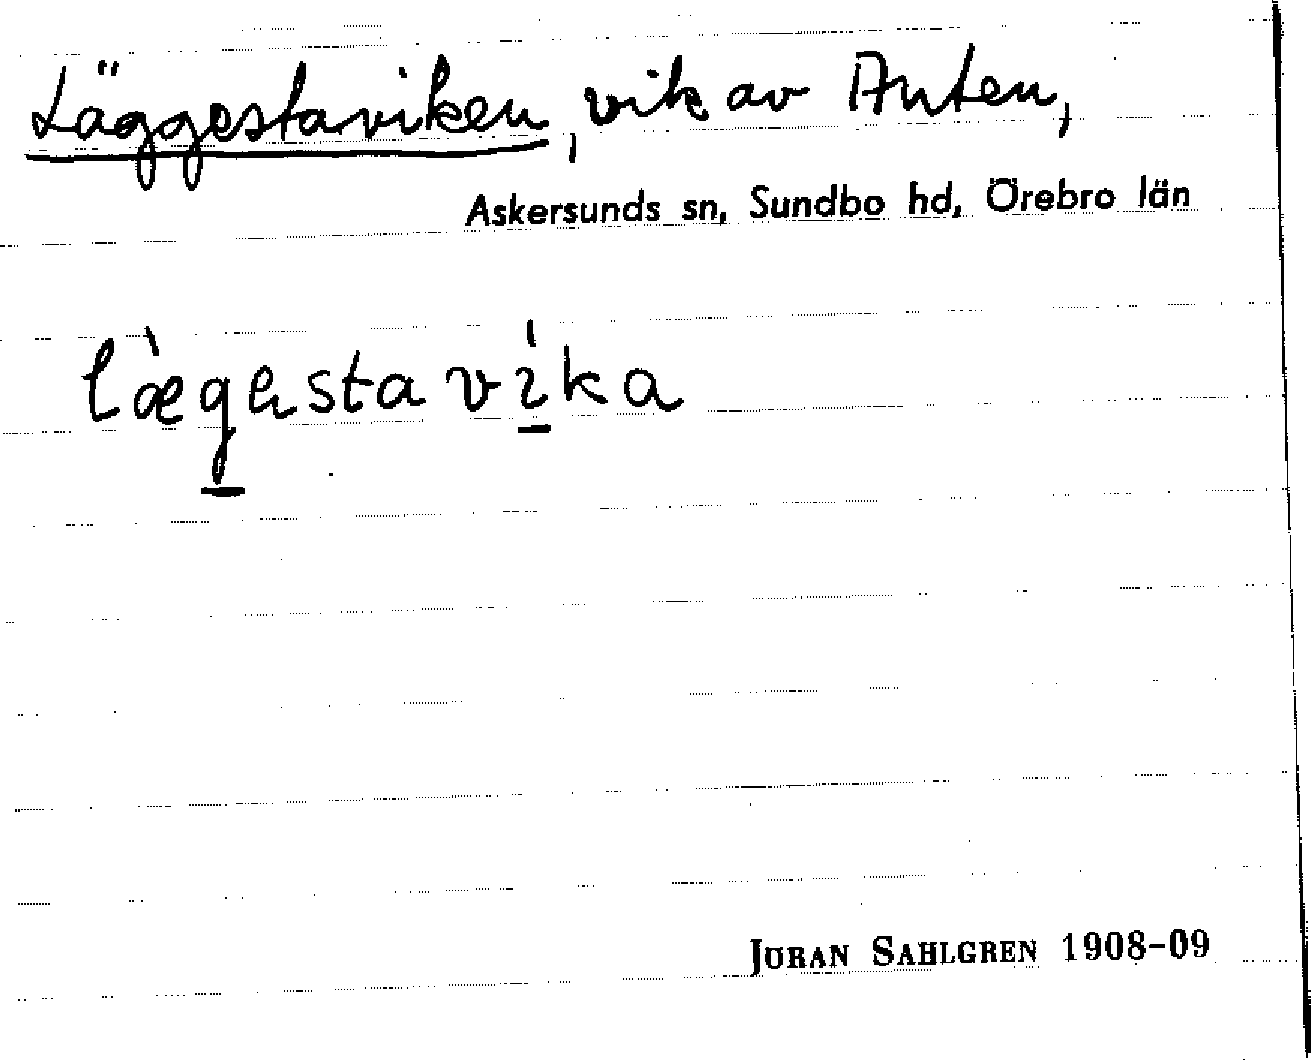 Läggestaviken, vik av Anten,
Askersunds sn, Sundbo hd, Örebro län
lægestavika
JÖRAN SAHLGREN 1908-09